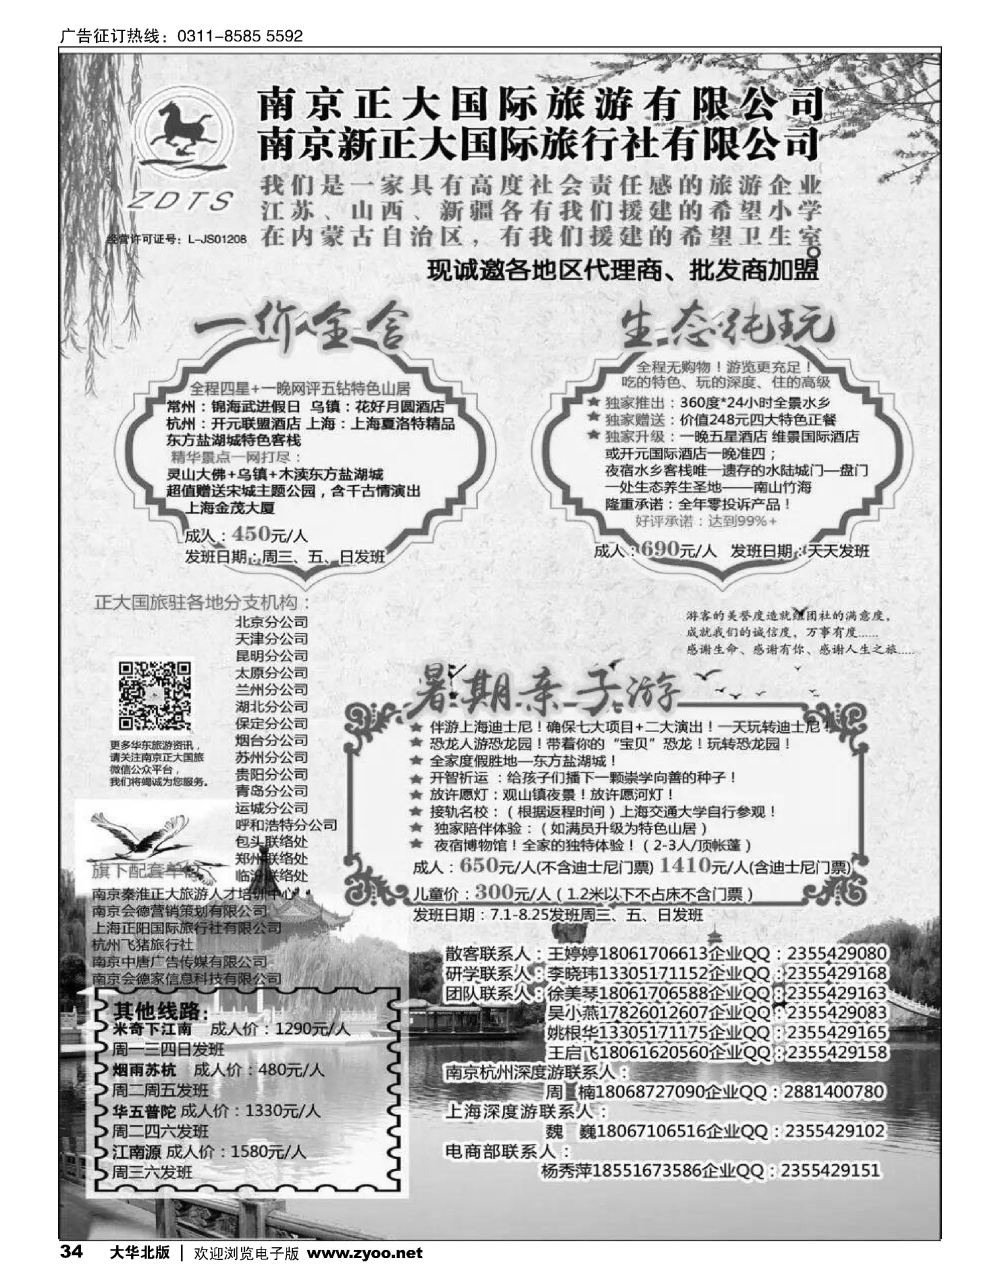 广告征订热线：0311-8585 5592
南京正大国际旅游有限公司
南京新正大国际旅行社有限公司
ZDTS
我们是一家具有高度社会责任感的旅游企业
江苏、山西、新疆各有我们援建的希望小学
经营许可证号：L-JS01208
在内蒙古自治区，有我们援建的希望卫生室。
现诚邀各地区代理商、批发商加盟
一价全含
全程四星+一晚网评五钻特色山居
常州：锦海武进假日 乌镇：花好月圆酒店
杭州：开元联盟酒店 上海：上海夏洛特精品
东方盐湖城特色客栈
精华景点一网打尽：
灵山大佛+乌镇+木渎东方盐湖城
超值赠送宋城主题公园，含千古情演出
上海金茂大厦
成人：450元/人
发班日期：周三、五、日发班
生态纯玩
全程无购物！游览更充足！
吃的特色、玩的深度、住的高级
★ 独家推出：360度*24小时全景水乡
★ 独家赠送：价值248元四大特色正餐
★ 独家升级：一晚五星酒店 维景国际酒店
或开元国际酒店一晚准四；
夜宿水乡客栈唯一遗存的水陆城门—盘门
一处生态养生圣地——南山竹海
隆重承诺：全年零投诉产品！
好评承诺：达到99%+
成人：690元/人 发班日期：天天发班
正大国旅驻各地分支机构：
北京分公司
天津分公司
昆明分公司
太原分公司
兰州分公司
湖北分公司
保定分公司
烟台分公司
苏州分公司
贵阳分公司
青岛分公司
运城分公司
呼和浩特分公司
包头联络处
郑州联络处
临汾联络处
更多华东旅游资讯，
请关注南京正大国旅
微信公众平台，
我们将竭诚为您服务。
旗下配套单位
南京秦淮正大旅游人才培训中心
南京会德营销策划有限公司
上海正阳国际旅行社有限公司
杭州飞猪旅行社
南京中唐广告传媒有限公司
南京会德家信息科技有限公司
游客的美誉度造就组团社的满意度，
成就我们的诚信度，万事有度......
感谢生命、感谢有你、感谢人生之旅.....
暑期亲子游
★ 伴游上海迪士尼！确保七大项目+二大演出！一天玩转迪士尼！
★ 恐龙人游恐龙园！带着你的“宝贝”恐龙！玩转恐龙园！
★ 全家度假胜地—东方盐湖城！
★ 开智祈运：给孩子们播下一颗崇学向善的种子！
★ 放许愿灯：观山镇夜景！放许愿河灯！
★ 接轨名校：（根据返程时间）上海交通大学自行参观！
★ 独家陪伴体验：（如满员升级为特色山居）
★ 夜宿博物馆！全家的独特体验！（2-3人/顶帐蓬）
成人：650元/人(不含迪士尼门票) 1410元/人(含迪士尼门票)
儿童价：300元/人（1.2米以下不占床不含门票）
发班日期：7.1-8.25发班周三、五、日发班
其他线路：
米奇下江南 成人价：1290元/人
周一三四日发班
烟雨苏杭 成人价：480元/人
周二周五发班
华五普陀 成人价：1330元/人
周二四六发班
江南源 成人价：1580元/人
周三六发班
散客联系人：王婷婷18061706613企业QQ：2355429080
研学联系人：李晓玮13305171152企业QQ：2355429168
团队联系人：徐美琴18061706588企业QQ：2355429163
吴小燕17826012607企业QQ：2355429083
姚根华13305171175企业QQ：2355429165
王启飞18061620560企业QQ：2355429158
南京杭州深度游联系人：
周 楠18068727090企业QQ：2881400780
上海深度游联系人：
魏 巍18067106516企业QQ：2355429102
电商部联系人：
杨秀萍18551673586企业QQ：2355429151
34 大华北版 | 欢迎浏览电子版 www.zyoo.net